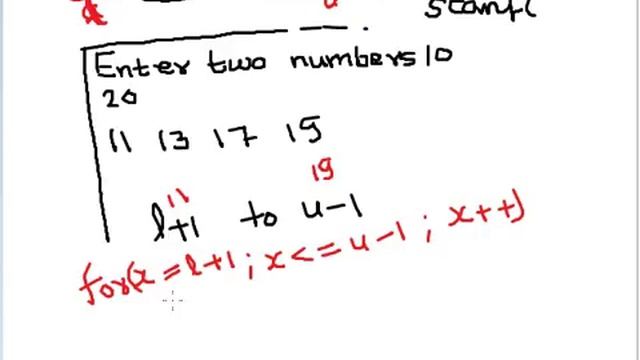 scanf(
Enter two numbers 10
20
11 13 17 19
11 19
l+1 to u-1
for(x=l+1; x<=u-1; x++)